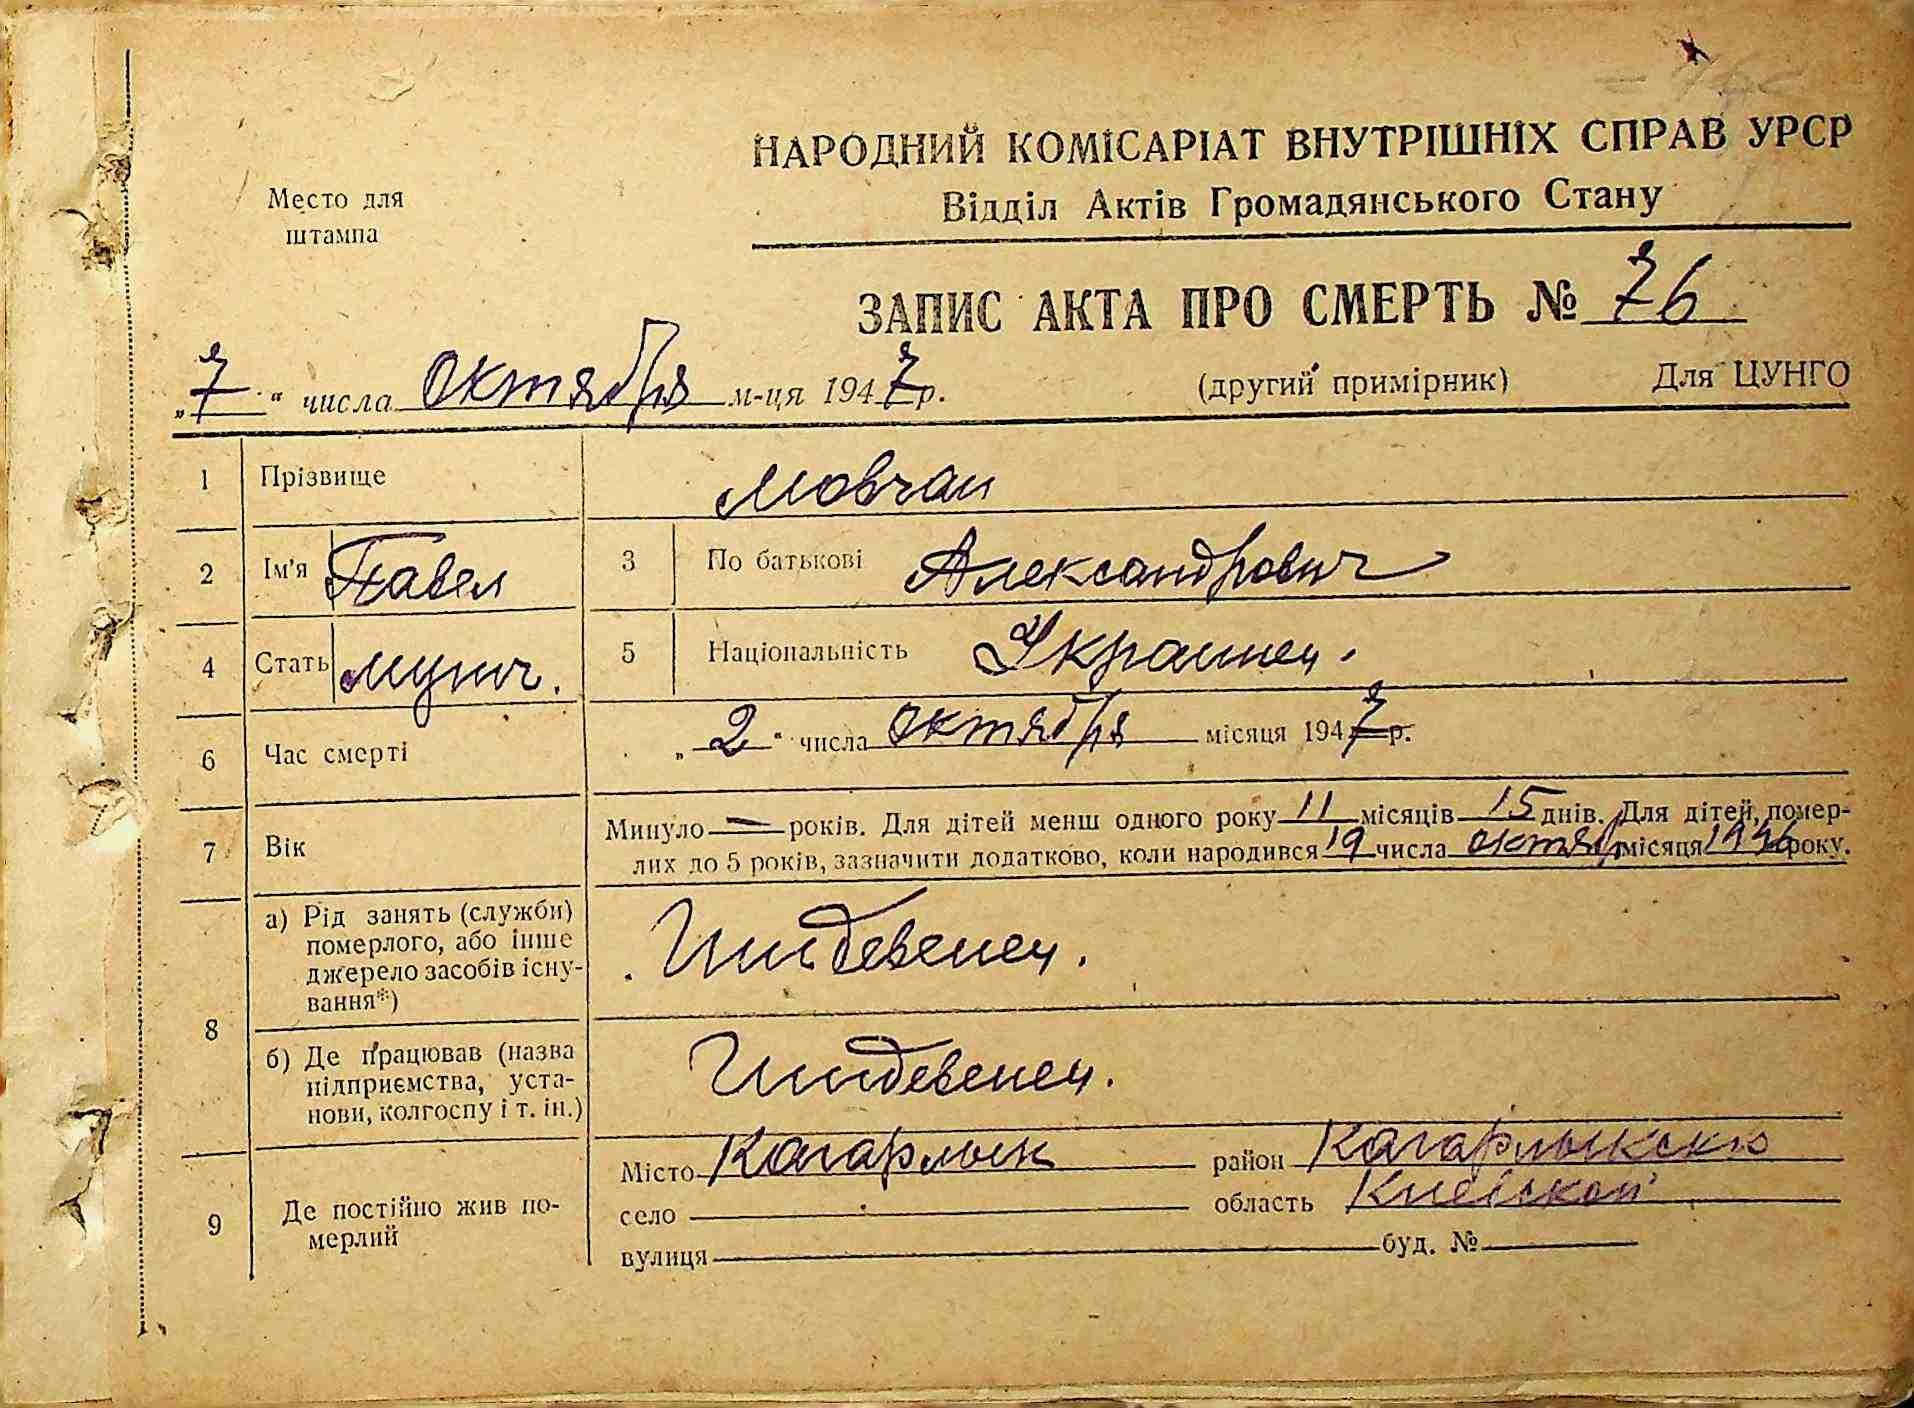 Место для
штампа
НАРОДНИЙ КОМІСАРІАТ ВНУТРІШНІХ СПРАВ УРСР
Відділ Актів Громадянського Стану
ЗАПИС АКТА ПРО СМЕРТЬ № 76
„7“ числа октября м-ця 1947 р.
(другий примірник) Для ЦУНГО
1 Прізвище Мовчан
2 Ім'я Павел 3 По батькові Александрович
4 Стать мужч. 5 Національність Украинец.
6 Час смерті „2“ числа октября місяця 1947 р.
7 Вік Минуло — років. Для дітей менш одного року 11 місяців 15 днів. Для дітей, помер-
лих до 5 років, зазначити додатково, коли народився 19 числа октября місяця 1946 року.
8 а) Рід занять (служби)
померлого, або інше
джерело засобів існу-
вання*)
Иждевенец.
б) Де працював (назва
підприємства, уста-
нови, колгоспу і т. ін.)
Иждевенец.
9 Де постійно жив по-
мерлий
Місто Кагарлык район Кагарлыкский
село — область Киевской
вулиця — буд. № —